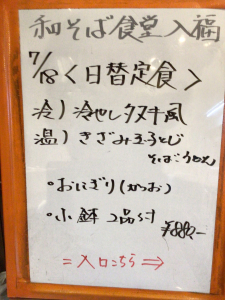 和そば食堂入福
7/18<日替定食>
冷)冷やしタヌキ風
温)きざみ玉子とじ
そば・うどん
・おにぎり(かつお)
・小鉢 2品付
¥880-
=入口こちら⇒